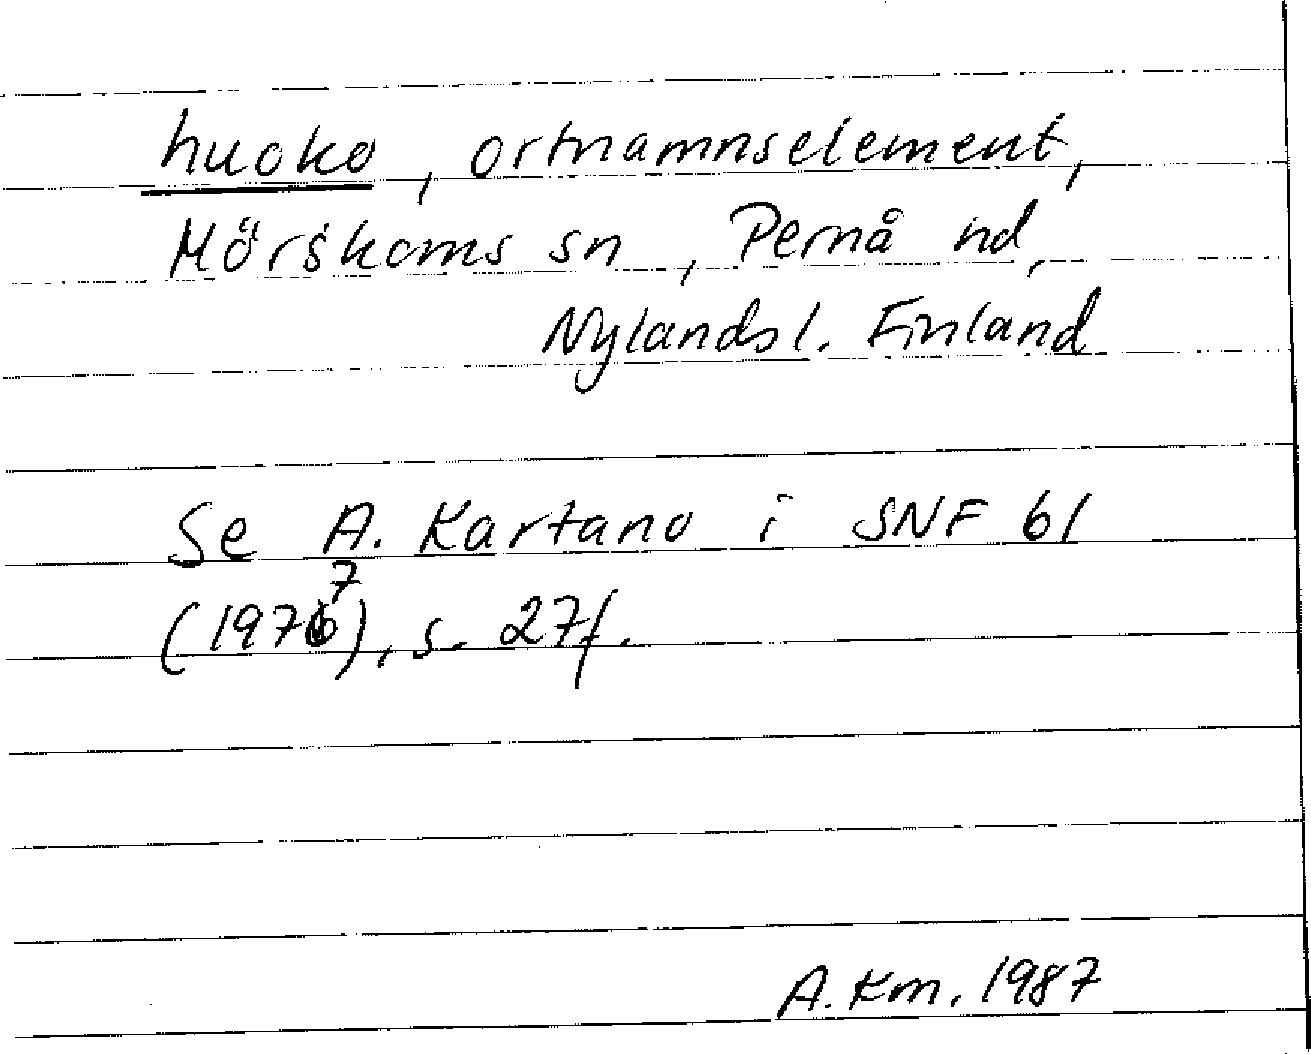 huoko, ortnamnselement,
Mörskoms sn, Pernå hd,
Nylands l. Finland
Se A. Kartano i SNF 61
(1977), s. 27f.
A. Km. 1987